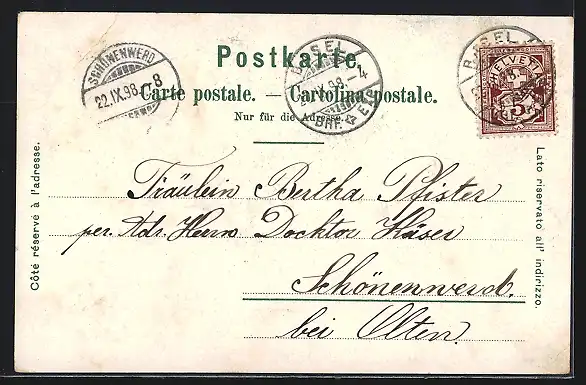 Postkarte.
Carte postale. — Cartolina postale.
Nur für die Adresse.
SCHÖNENWERD
22.IX.98.–8
BASEL
IX.98.–4
BRF.
BASEL
HELVETIA
Côté réservé à l'adresse.
Lato riservato all' indirizzo.
Fräulein Bertha Pfister
per Adr. Herrn Docktor Häser
Schönenwerd.
bei Olten.